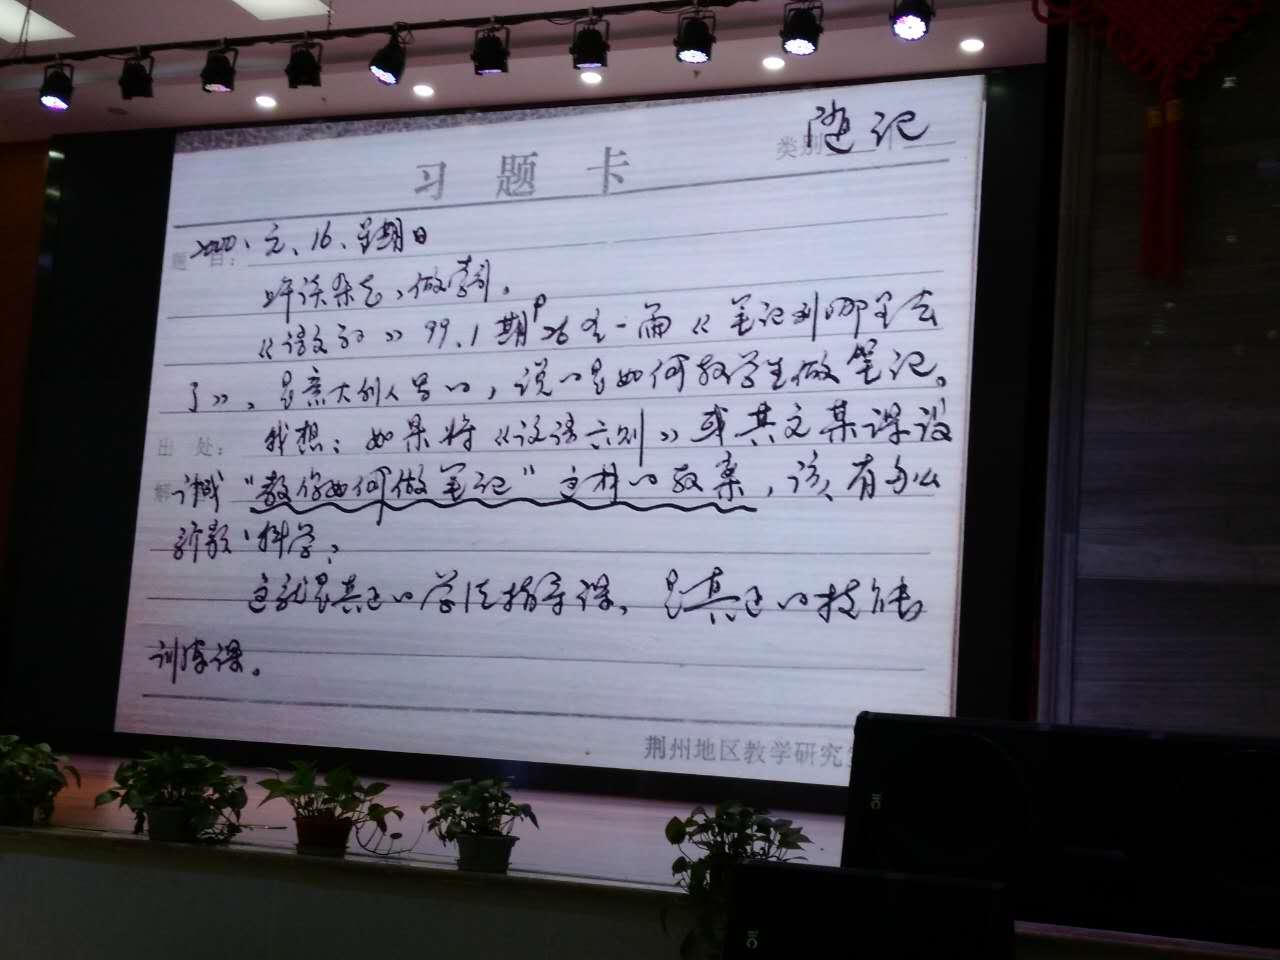 随记
类别
习题卡
2000、元、16、星期日
题目：
上午读杂志，做索引。
《语文》99.1期P26有一篇《笔记到哪里去
了》，是意大利人写的，说的是如何教学生做笔记。
出处：
我想：如果将《论语六则》或其文某课设
计成“教你如何做笔记”这样的教案，该有多么
新颖、科学；
这就是真正的学法指导课，是真正的技能
训练课。
荆州地区教学研究